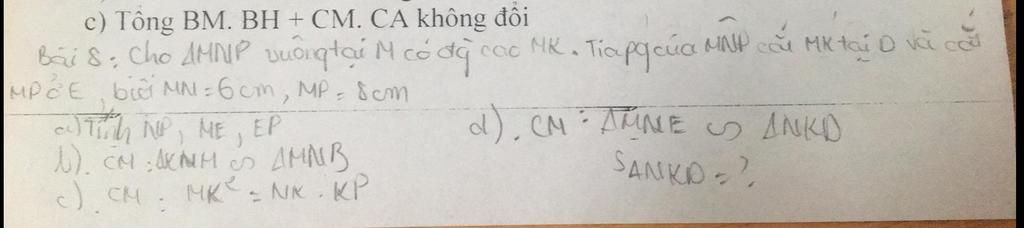 c) Tổng BM. BH + CM. CA không đổi
Bài 8: Cho ΔMNP vuông tại M có đg cao MK. Tia pg của MNP cắt MK tại D và cắt
MP ở E, biết MN = 6cm, MP = 8cm
a) Tính NP, ME, EP
d). CM : ΔMNE ∽ ΔNKD
b). CM : ΔKNM ∽ ΔMNB
SΔNKD = ?.
c). CM : MK² = NK . KP